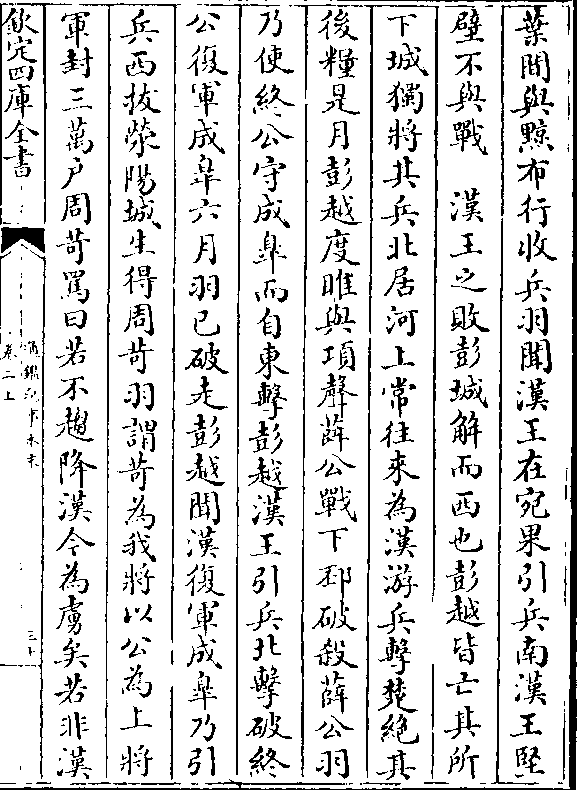 葉間與黥布行收兵羽聞漢王在宛果引兵南漢王堅
壁不與戰　漢王之敗彭城解而西也彭越皆亡其所
下城獨將其兵北居河上常往來為漢游兵擊楚絶其
後糧是月彭越度睢與項聲薛公戰下邳破殺薛公羽
乃使終公守成臯而自東擊彭越漢王引兵北擊破終
公復軍成臯六月羽已破走彭越聞漢復軍成臯乃引
兵西拔滎陽城生得周苛羽謂苛為我將以公為上將
軍封三萬户周苛罵曰若不趨降漢今為虜矣若非漢
欽定四庫全書
通鑑紀事本末
卷二上
三十